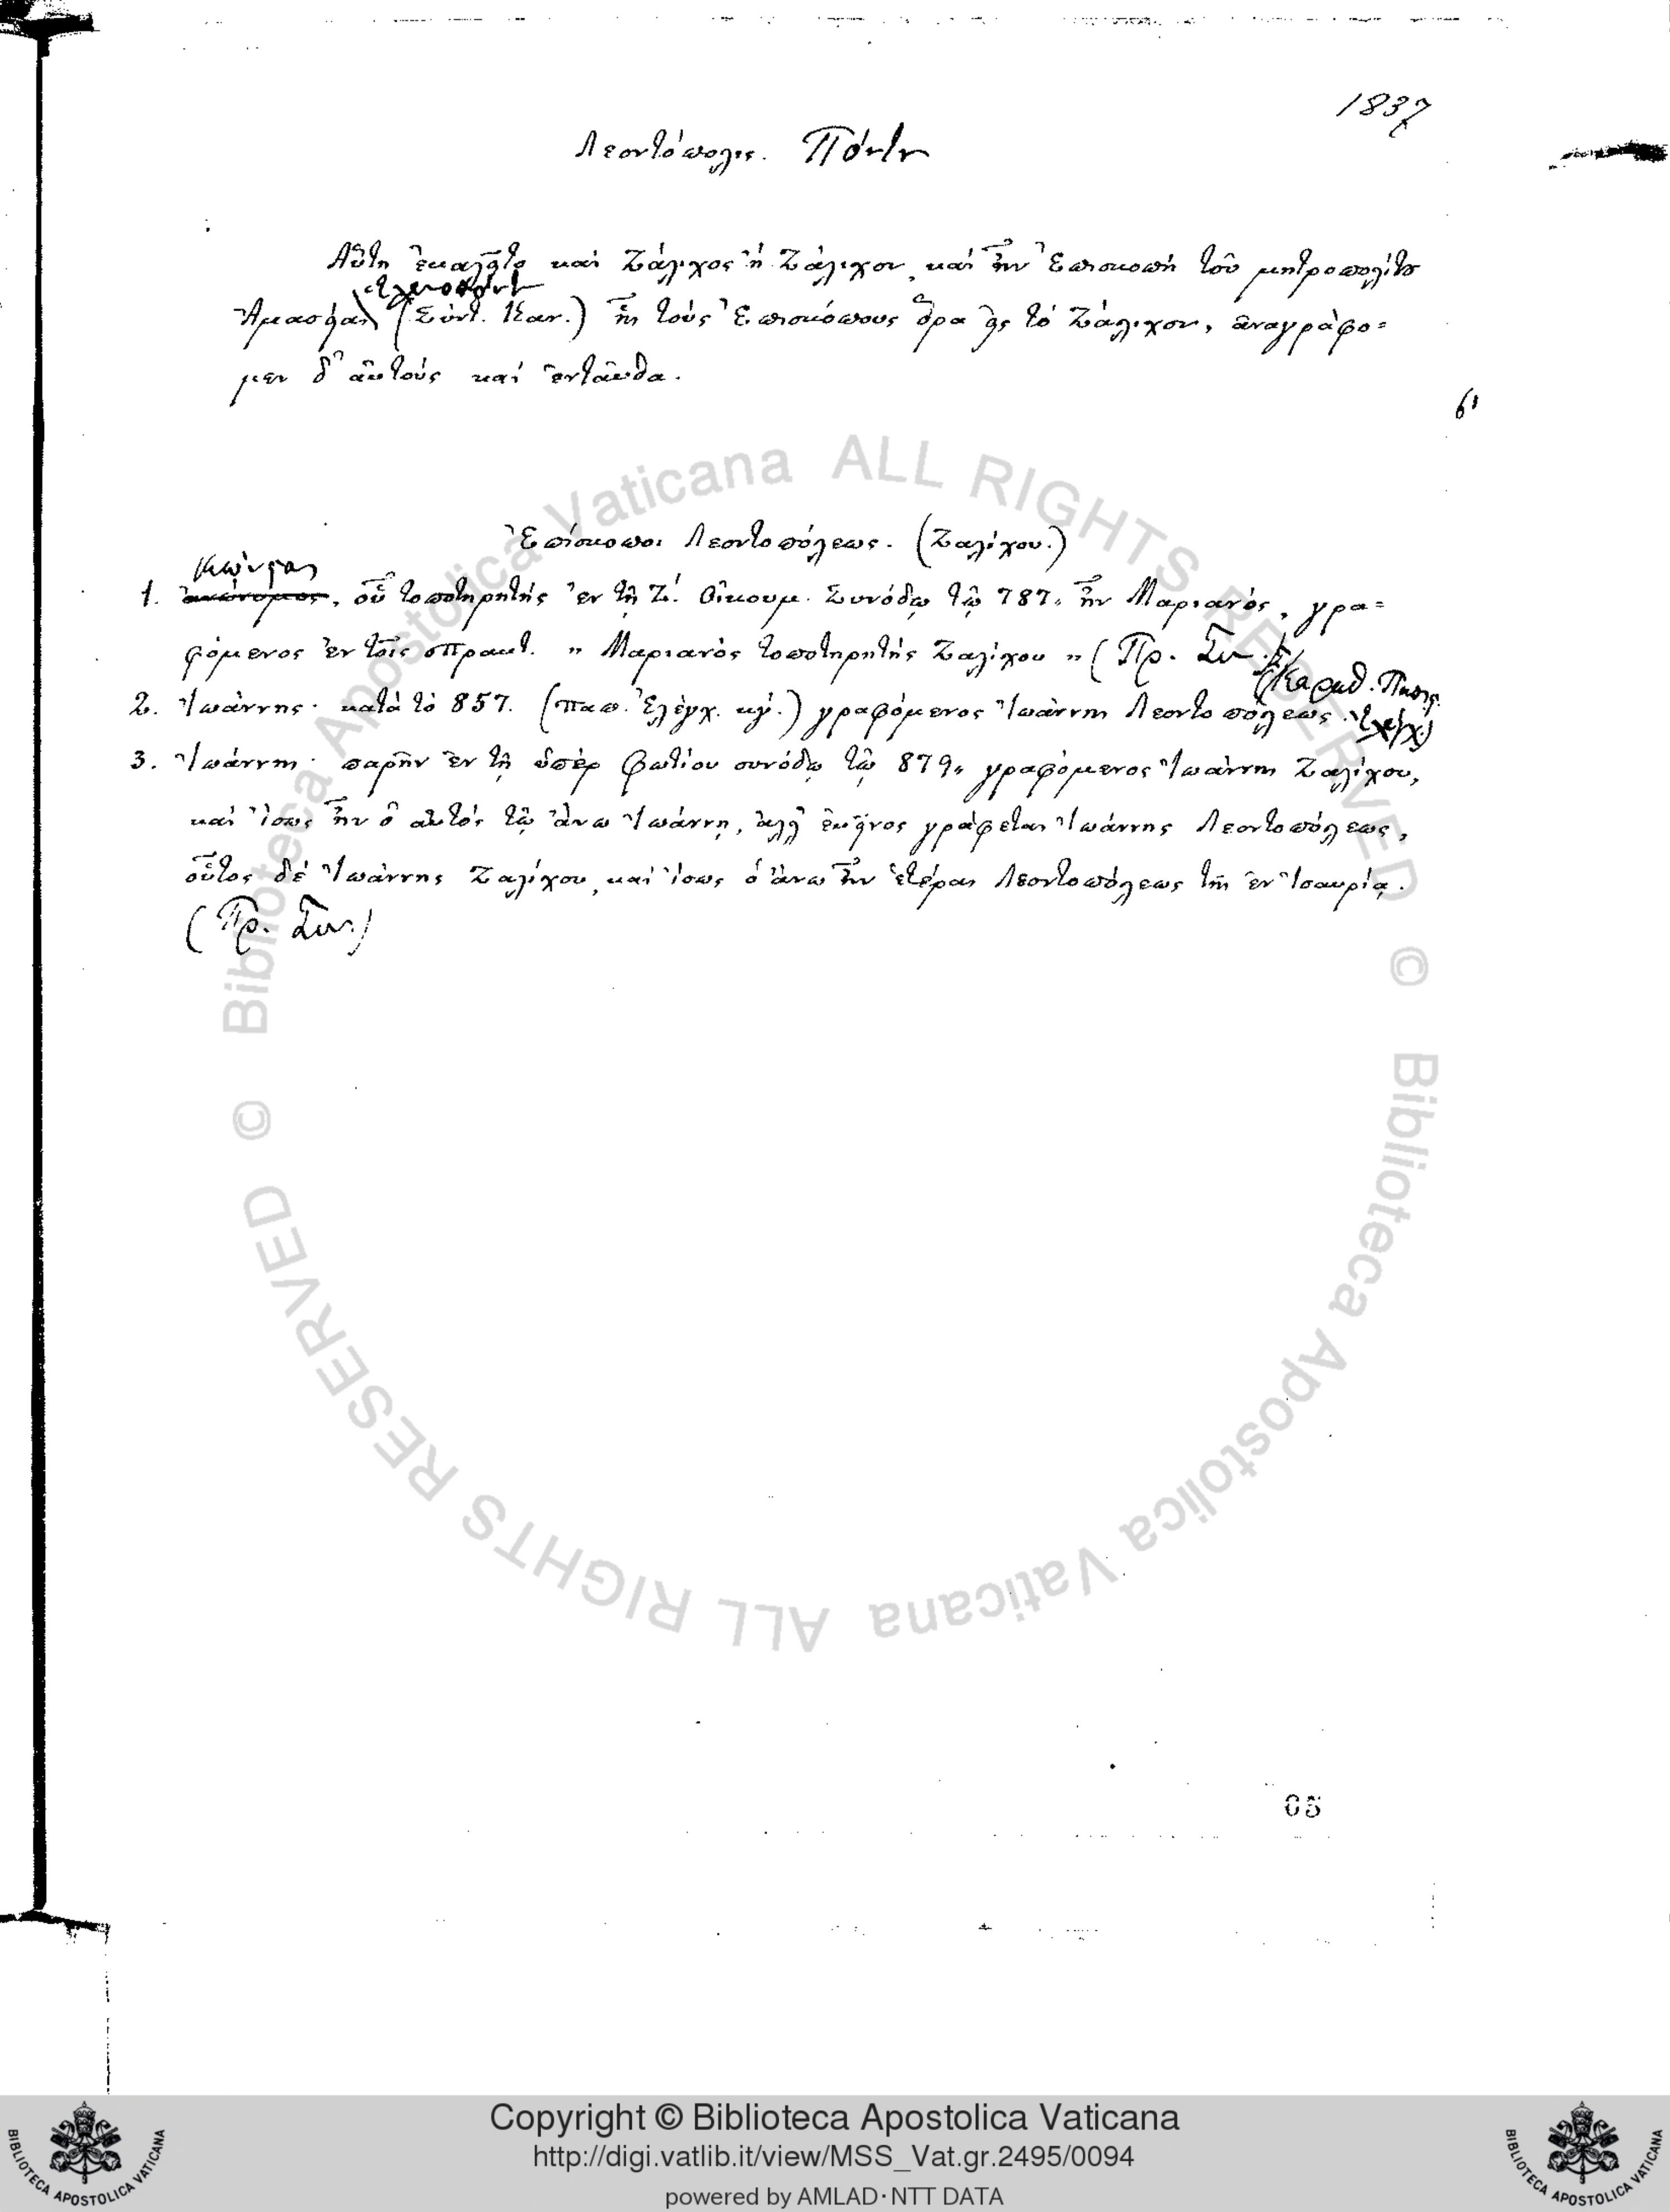 1837
Λεοντόπολις. Πόντου
Αὕτη ἐκαλεῖτο καὶ Ζάλιχος ἢ Ζάλιχον, καὶ ἦν Ἐπισκοπὴ τοῦ μητροπολίτου
Ἑλενοπόντου
Ἀμασείας (Σύντ. Καν.) ἧς τοὺς Ἐπισκόπους ὅρα εἰς τὸ Ζάλιχον, ἀναγράφο=
μεν δ' αὐτοὺς καὶ ἐνταῦθα.
Ἐπίσκοποι Λεοντοπόλεως. (Ζαλίχου.)
1. οὗ τοποτηρητὴς ἐν τῇ Ζ! Οἰκουμ. Συνόδῳ τῷ 787, ἦν Μαριανός, γρα=
φόμενος ἐν τοῖς πρακτ. „ Μαριανὸς τοποτηρητὴς Ζαλίχου „ (Πρ. Συν.)
2. Ἰωάννης· κατὰ τὸ 857. (παπ. Ἐλέγχ. κγ.) γραφόμενος Ἰωάννης Λεοντοπόλεως.
3. Ἰωάννης· παρῆν ἐν τῇ ὑπὲρ Φωτίου συνόδῳ τῷ 879, γραφόμενος Ἰωάννης Ζαλίχου,
καὶ ἴσως ἦν ὁ αὐτὸς τῷ ἄνω Ἰωάννῃ, ἀλλ' ἐκεῖνος γράφεται Ἰωάννης Λεοντοπόλεως,
οὗτος δὲ Ἰωάννης Ζαλίχου, καὶ ἴσως ὁ ἄνω ἦν ἑτέρας Λεοντοπόλεως τῆς ἐν Ἰσαυρίᾳ.
(Πρ. Συν.)
© Biblioteca Apostolica Vaticana ALL RIGHTS RESERVED
© Biblioteca Apostolica Vaticana ALL RIGHTS RESERVED
Copyright © Biblioteca Apostolica Vaticana
http://digi.vatlib.it/view/MSS_Vat.gr.2495/0094
powered by AMLAD·NTT DATA
BIBLIOTECA APOSTOLICA VATICANA
BIBLIOTECA APOSTOLICA VATICANA